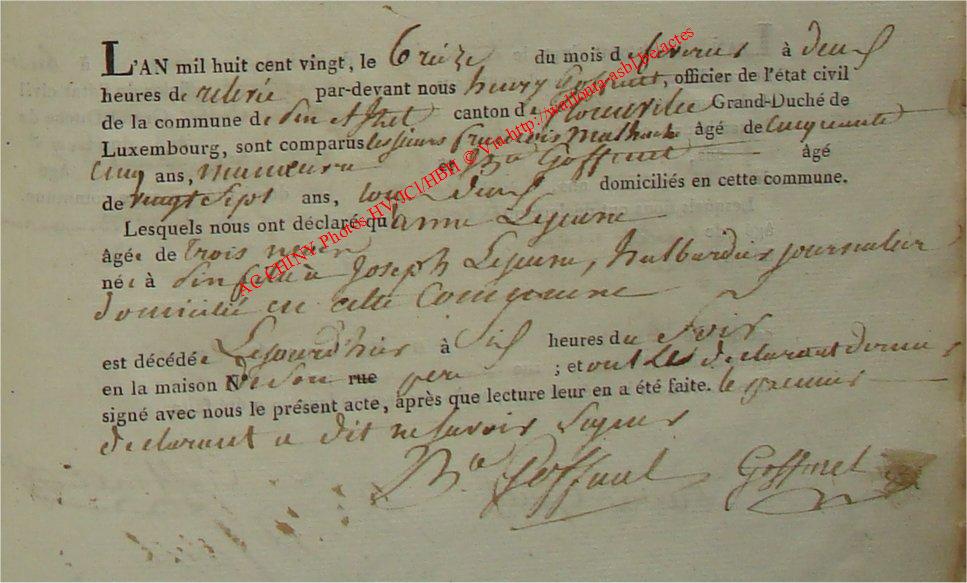 L'AN mil huit cent vingt, le treize du mois de fevrier à deux
heures de relevé par-devant nous henry Goffinet, officier de l'état civil
de la commune de canton de Grand-Duché de
Luxembourg, sont comparus les sieurs François âgé de cinquante
cinq ans, et Goffinet âgé
de vingt sept ans, tous deux domiciliés en cette commune.
Lesquels nous ont déclaré qu'anne Lejeune
âgée de trois
née à fille à Joseph Lejeune, journalier
domicilié en cette Commune
est décédée Lejourd'hier à six heures du soir
en la maison N° de son rue pere ; et ont les declarant dernier
signé avec nous le présent acte, après que lecture leur en a été faite. le premier
declarant a dit ne savoir signer
Goffinet Goffinet
AC CHINY Photos HVDC1/HBH © Vm http://wallonia-asbl.be/actes